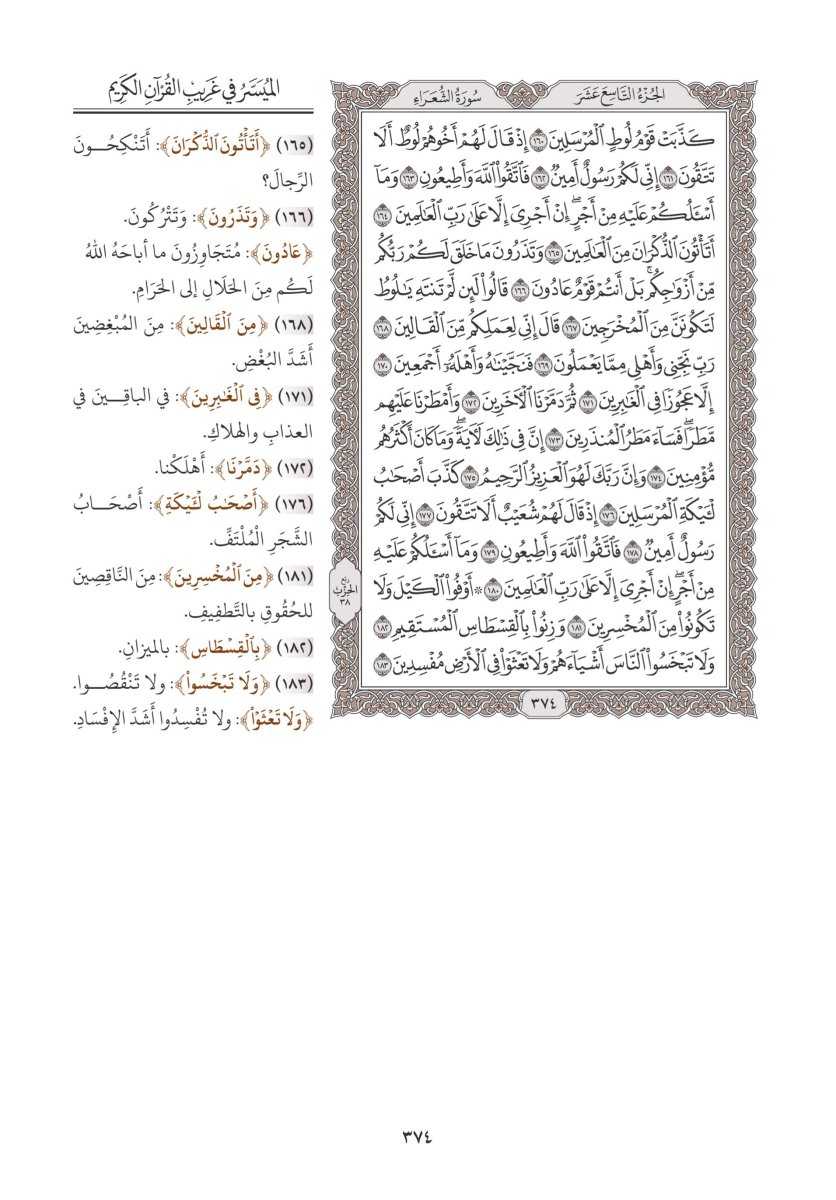 الجُزْءُ التَّاسِعَ عَشَرَ
سُورَةُ الشُّعَرَاءِ
كَذَّبَتْ قَوْمُ لُوطٍ ٱلْمُرْسَلِينَ ١٦٠ إِذْ قَالَ لَهُمْ أَخُوهُمْ لُوطٌ أَلَا
تَتَّقُونَ ١٦١ إِنِّى لَكُمْ رَسُولٌ أَمِينٌ ١٦٢ فَٱتَّقُوا۟ ٱللَّهَ وَأَطِيعُونِ ١٦٣ وَمَآ
أَسْـَٔلُكُمْ عَلَيْهِ مِنْ أَجْرٍ ۖ إِنْ أَجْرِىَ إِلَّا عَلَىٰ رَبِّ ٱلْعَـٰلَمِينَ ١٦٤
أَتَأْتُونَ ٱلذُّكْرَانَ مِنَ ٱلْعَـٰلَمِينَ ١٦٥ وَتَذَرُونَ مَا خَلَقَ لَكُمْ رَبُّكُم
مِّنْ أَزْوَٰجِكُم ۚ بَلْ أَنتُمْ قَوْمٌ عَادُونَ ١٦٦ قَالُوا۟ لَئِن لَّمْ تَنتَهِ يَـٰلُوطُ
لَتَكُونَنَّ مِنَ ٱلْمُخْرَجِينَ ١٦٧ قَالَ إِنِّى لِعَمَلِكُم مِّنَ ٱلْقَالِينَ ١٦٨
رَبِّ نَجِّنِى وَأَهْلِى مِمَّا يَعْمَلُونَ ١٦٩ فَنَجَّيْنَـٰهُ وَأَهْلَهُۥٓ أَجْمَعِينَ ١٧٠
إِلَّا عَجُوزًا فِى ٱلْغَـٰبِرِينَ ١٧١ ثُمَّ دَمَّرْنَا ٱلْـَٔاخَرِينَ ١٧٢ وَأَمْطَرْنَا عَلَيْهِم
مَّطَرًا ۖ فَسَآءَ مَطَرُ ٱلْمُنذَرِينَ ١٧٣ إِنَّ فِى ذَٰلِكَ لَـَٔايَةً ۖ وَمَا كَانَ أَكْثَرُهُم
مُّؤْمِنِينَ ١٧٤ وَإِنَّ رَبَّكَ لَهُوَ ٱلْعَزِيزُ ٱلرَّحِيمُ ١٧٥ كَذَّبَ أَصْحَـٰبُ
لْـَٔيْكَةِ ٱلْمُرْسَلِينَ ١٧٦ إِذْ قَالَ لَهُمْ شُعَيْبٌ أَلَا تَتَّقُونَ ١٧٧ إِنِّى لَكُمْ
رَسُولٌ أَمِينٌ ١٧٨ فَٱتَّقُوا۟ ٱللَّهَ وَأَطِيعُونِ ١٧٩ وَمَآ أَسْـَٔلُكُمْ عَلَيْهِ
مِنْ أَجْرٍ ۖ إِنْ أَجْرِىَ إِلَّا عَلَىٰ رَبِّ ٱلْعَـٰلَمِينَ ١٨٠ ۞ أَوْفُوا۟ ٱلْكَيْلَ وَلَا
تَكُونُوا۟ مِنَ ٱلْمُخْسِرِينَ ١٨١ وَزِنُوا۟ بِٱلْقِسْطَاسِ ٱلْمُسْتَقِيمِ ١٨٢
وَلَا تَبْخَسُوا۟ ٱلنَّاسَ أَشْيَآءَهُمْ وَلَا تَعْثَوْا۟ فِى ٱلْأَرْضِ مُفْسِدِينَ ١٨٣
ربع
الحزب
٣٨
٣٧٤
المُيَسَّرُ في غَرِيبِ القُرْآنِ الكَرِيمِ
(١٦٥) ﴿أَتَأْتُونَ ٱلذُّكْرَانَ﴾: أَتَنْكِحُونَ
الرِّجالَ؟
(١٦٦) ﴿وَتَذَرُونَ﴾: وَتَتْرُكُونَ.
﴿عَادُونَ﴾: مُتَجَاوِزُونَ ما أباحَهُ اللهُ
لَكُم مِنَ الحَلَالِ إلى الحَرَامِ.
(١٦٨) ﴿مِنَ ٱلْقَالِينَ﴾: مِنَ المُبْغِضِينَ
أَشَدَّ البُغْضِ.
(١٧١) ﴿فِى ٱلْغَـٰبِرِينَ﴾: في الباقِينَ في
العذابِ والهلاكِ.
(١٧٢) ﴿دَمَّرْنَا﴾: أَهْلَكْنا.
(١٧٦) ﴿أَصْحَـٰبُ لْـَٔيْكَةِ﴾: أَصْحَابُ
الشَّجَرِ الْمُلْتَفِّ.
(١٨١) ﴿مِنَ ٱلْمُخْسِرِينَ﴾: مِنَ النَّاقِصِينَ
للحُقُوقِ بالتَّطفِيفِ.
(١٨٢) ﴿بِٱلْقِسْطَاسِ﴾: بالميزانِ.
(١٨٣) ﴿وَلَا تَبْخَسُوا۟﴾: ولا تَنْقُصُوا.
﴿وَلَا تَعْثَوْا۟﴾: ولا تُفْسِدُوا أَشَدَّ الإِفْسَادِ.
٣٧٤